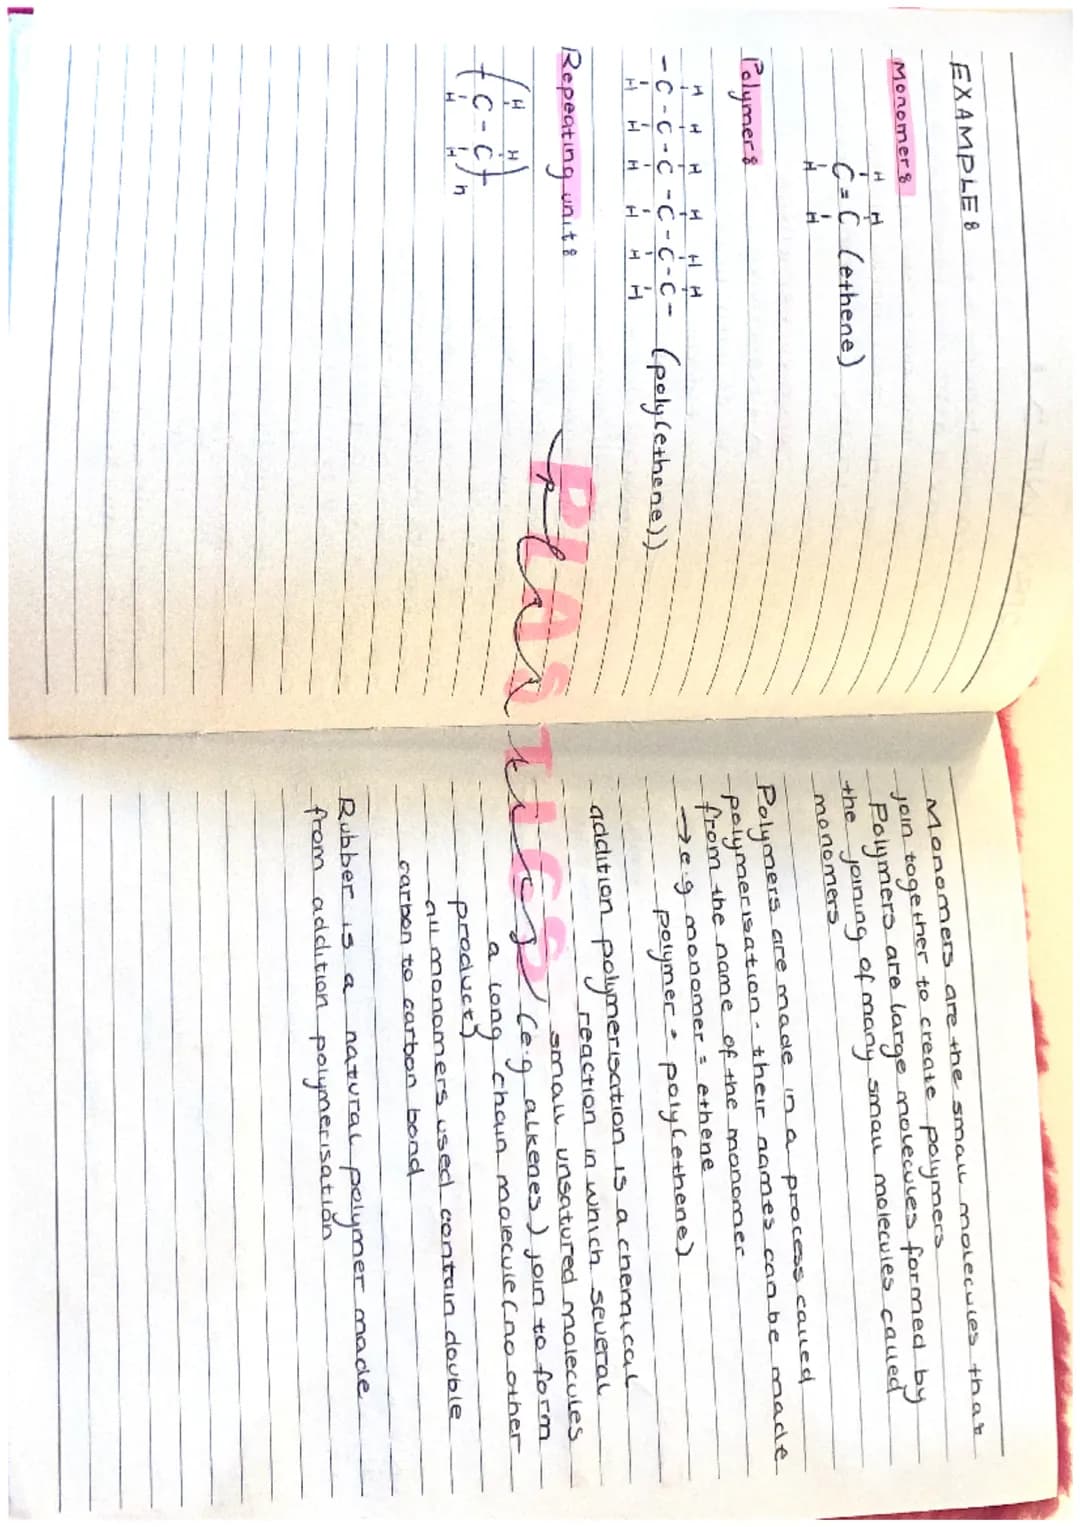 EXAMPLE:
Monomer:
H H
C = C (ethene)
H H
Polymer:
H H H H H H
- C - C - C - C - C - C - (poly(ethene))
H H H H H H
Repeating unit:
H H
( C - C )n
H H
PLASTICS
plastics
Monomers are the small molecules that
join together to create polymers
Polymers are large molecules formed by
the joining of many small molecules called
monomers
Polymers are made in a process called
polymerisation - their names can be made
from the name of the monomer
→ e.g monomer = ethene
polymer = poly(ethene)
addition polymerisation is a chemical
reaction in which several
small unsatured molecules
(e.g alkenes) join to form
a long chain molecule (no other
product)
all monomers used contain double
carbon to carbon bond
Rubber is a natural polymer made
from addition polymerisation